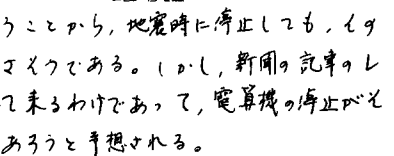 うことから,地震時に停止しても,その
さそうである。しかし,新聞の記事のレ
て来るわけであって,電算機の停止がそ
あろうと予想される。